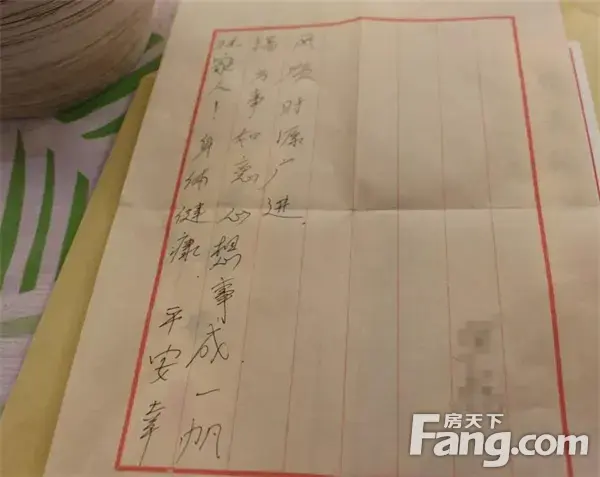 祝家人！身体健康．平安幸
福万事如意心想事成．一帆
风顺财源广进．
房天下
Fang.com